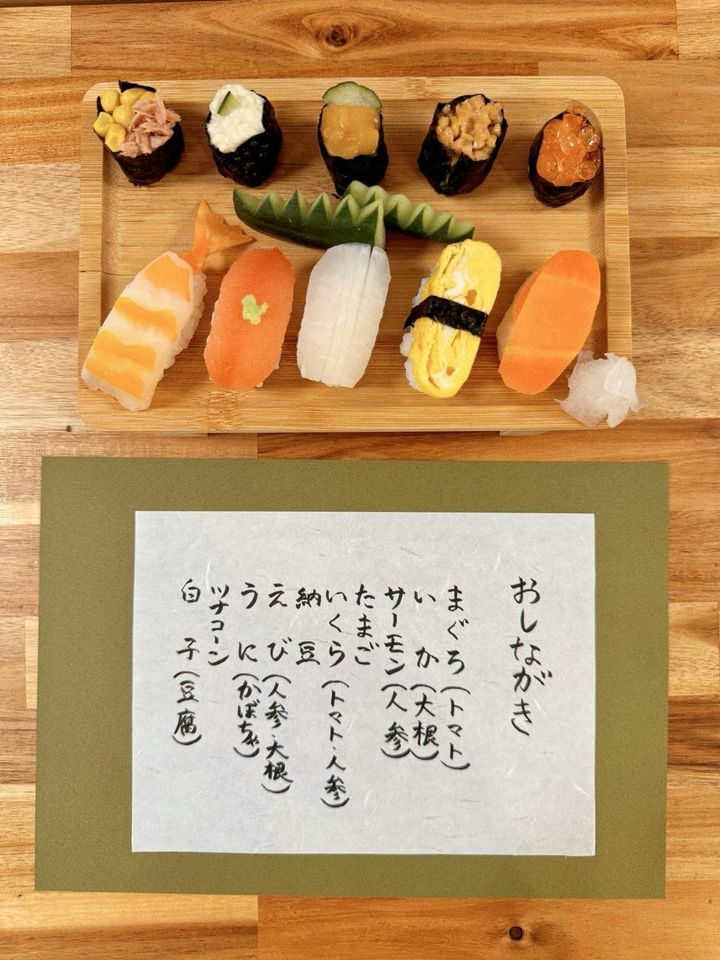 おしながき
まぐろ(トマト)
いか(大根)
サーモン(人参)
たまご
いくら(トマト・人参)
納豆
えび(人参・大根)
うに(かぼちゃ)
ツナコーン
白子(豆腐)